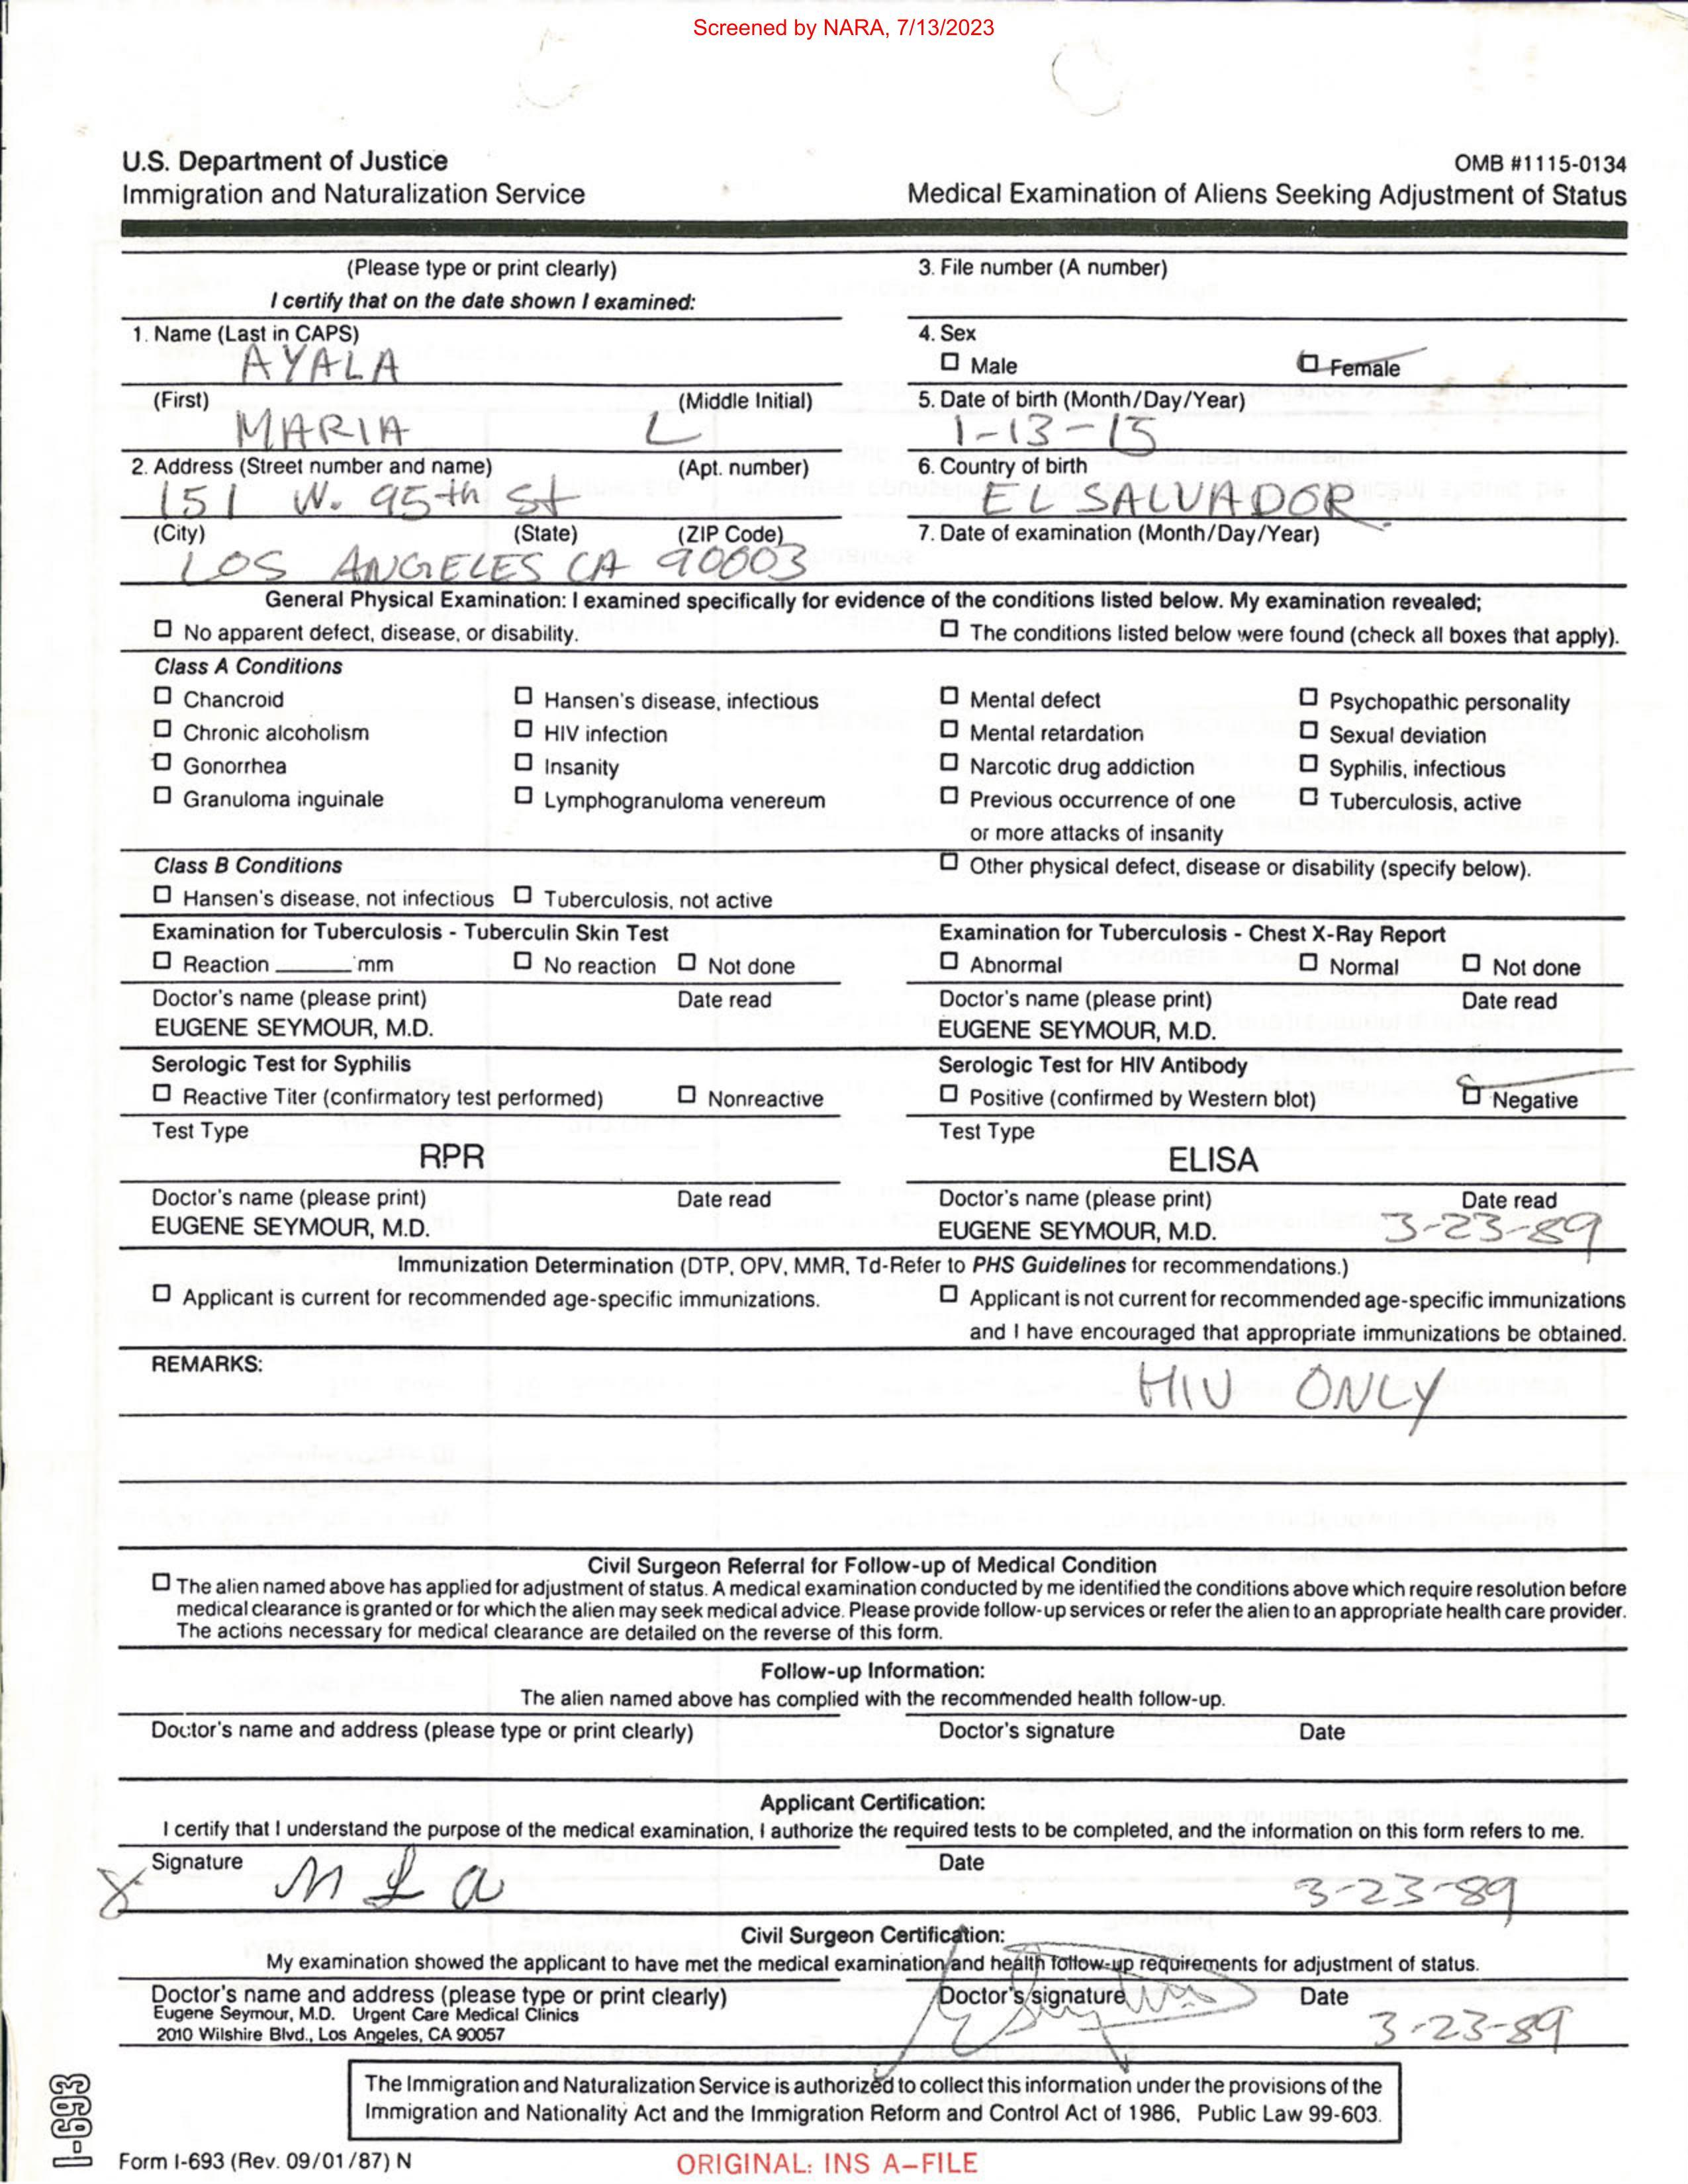 Screened by NARA, 7/13/2023
U.S. Department of Justice
Immigration and Naturalization Service
OMB #1115-0134
Medical Examination of Aliens Seeking Adjustment of Status
(Please type or print clearly)
I certify that on the date shown I examined:
3. File number (A number)
1. Name (Last in CAPS)
AYALA
4. Sex
☐ Male ☐ Female
(First) (Middle Initial)
MARIA L
5. Date of birth (Month/Day/Year)
1-13-15
2. Address (Street number and name) (Apt. number)
151 W. 95th St
6. Country of birth
EL SALVADOR
(City) (State) (ZIP Code)
LOS ANGELES CA 90003
7. Date of examination (Month/Day/Year)
General Physical Examination: I examined specifically for evidence of the conditions listed below. My examination revealed;
☐ No apparent defect, disease, or disability. ☐ The conditions listed below were found (check all boxes that apply).
Class A Conditions
☐ Chancroid ☐ Hansen's disease, infectious ☐ Mental defect ☐ Psychopathic personality
☐ Chronic alcoholism ☐ HIV infection ☐ Mental retardation ☐ Sexual deviation
☐ Gonorrhea ☐ Insanity ☐ Narcotic drug addiction ☐ Syphilis, infectious
☐ Granuloma inguinale ☐ Lymphogranuloma venereum ☐ Previous occurrence of one ☐ Tuberculosis, active
or more attacks of insanity
Class B Conditions ☐ Other physical defect, disease or disability (specify below).
☐ Hansen's disease, not infectious ☐ Tuberculosis, not active
Examination for Tuberculosis - Tuberculin Skin Test
☐ Reaction ______ mm ☐ No reaction ☐ Not done
Doctor's name (please print) Date read
EUGENE SEYMOUR, M.D.
Examination for Tuberculosis - Chest X-Ray Report
☐ Abnormal ☐ Normal ☐ Not done
Doctor's name (please print) Date read
EUGENE SEYMOUR, M.D.
Serologic Test for Syphilis
☐ Reactive Titer (confirmatory test performed) ☐ Nonreactive
Test Type
RPR
Doctor's name (please print) Date read
EUGENE SEYMOUR, M.D.
Serologic Test for HIV Antibody
☐ Positive (confirmed by Western blot) ☐ Negative
Test Type
ELISA
Doctor's name (please print) Date read
EUGENE SEYMOUR, M.D. 3-23-89
Immunization Determination (DTP, OPV, MMR, Td-Refer to PHS Guidelines for recommendations.)
☐ Applicant is current for recommended age-specific immunizations. ☐ Applicant is not current for recommended age-specific immunizations
and I have encouraged that appropriate immunizations be obtained.
REMARKS:
HIV ONLY
Civil Surgeon Referral for Follow-up of Medical Condition
☐ The alien named above has applied for adjustment of status. A medical examination conducted by me identified the conditions above which require resolution before
medical clearance is granted or for which the alien may seek medical advice. Please provide follow-up services or refer the alien to an appropriate health care provider.
The actions necessary for medical clearance are detailed on the reverse of this form.
Follow-up Information:
The alien named above has complied with the recommended health follow-up.
Doctor's name and address (please type or print clearly) Doctor's signature Date
Applicant Certification:
I certify that I understand the purpose of the medical examination, I authorize the required tests to be completed, and the information on this form refers to me.
Signature Date
X M L a 3-23-89
Civil Surgeon Certification:
My examination showed the applicant to have met the medical examination and health follow-up requirements for adjustment of status.
Doctor's name and address (please type or print clearly) Doctor's signature Date
Eugene Seymour, M.D. Urgent Care Medical Clinics
2010 Wilshire Blvd., Los Angeles, CA 90057
3-23-89
The Immigration and Naturalization Service is authorized to collect this information under the provisions of the
Immigration and Nationality Act and the Immigration Reform and Control Act of 1986, Public Law 99-603.
I-693
Form I-693 (Rev. 09/01/87) N
ORIGINAL: INS A-FILE